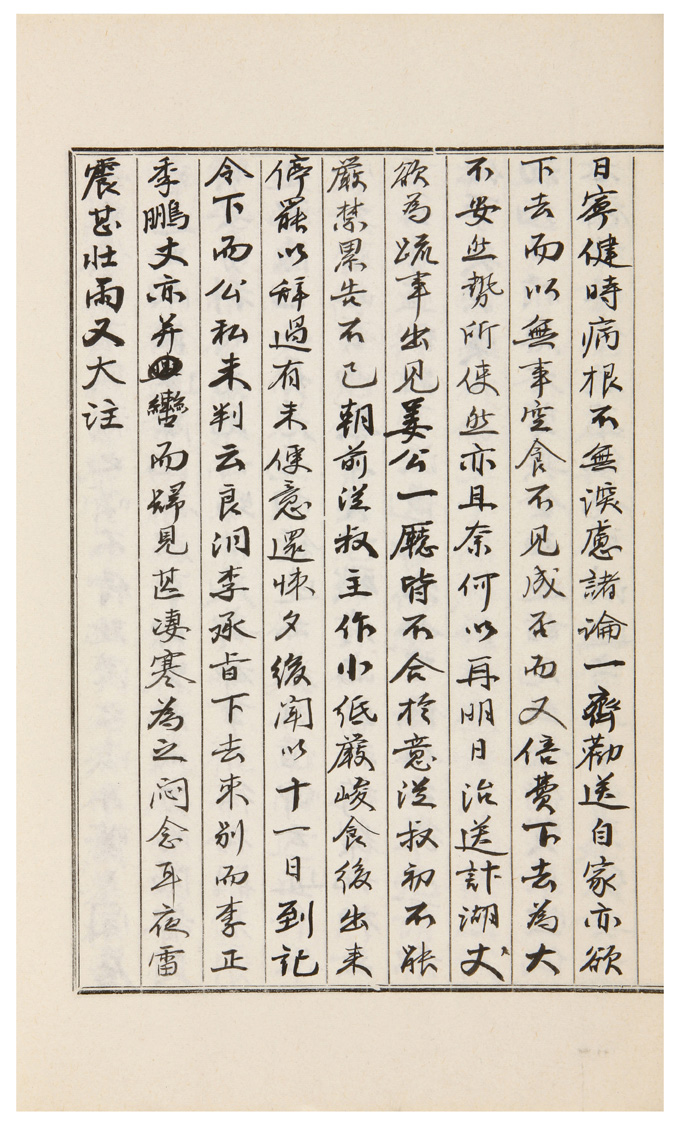 日寧健時病根不無淚慮諸論一齊勸送自家亦欲
下去而以無事空食不見成否而又倍費下去為大
不安然勢所使然亦且奈何以再明日治送計湖丈
欲為疏事出見姜公一廳皆不合於意從叔初不能
嚴禁累告不已朝前從叔主作小低嚴峻食後出来
停罷以辞過有未便意還悚夕後聞以十一日到記
令下而公私未判云良泪李承旨下去来別而李正
季鵬丈亦并轡而歸見甚凄寒為之悶念耳夜雷
震甚壯雨又大注